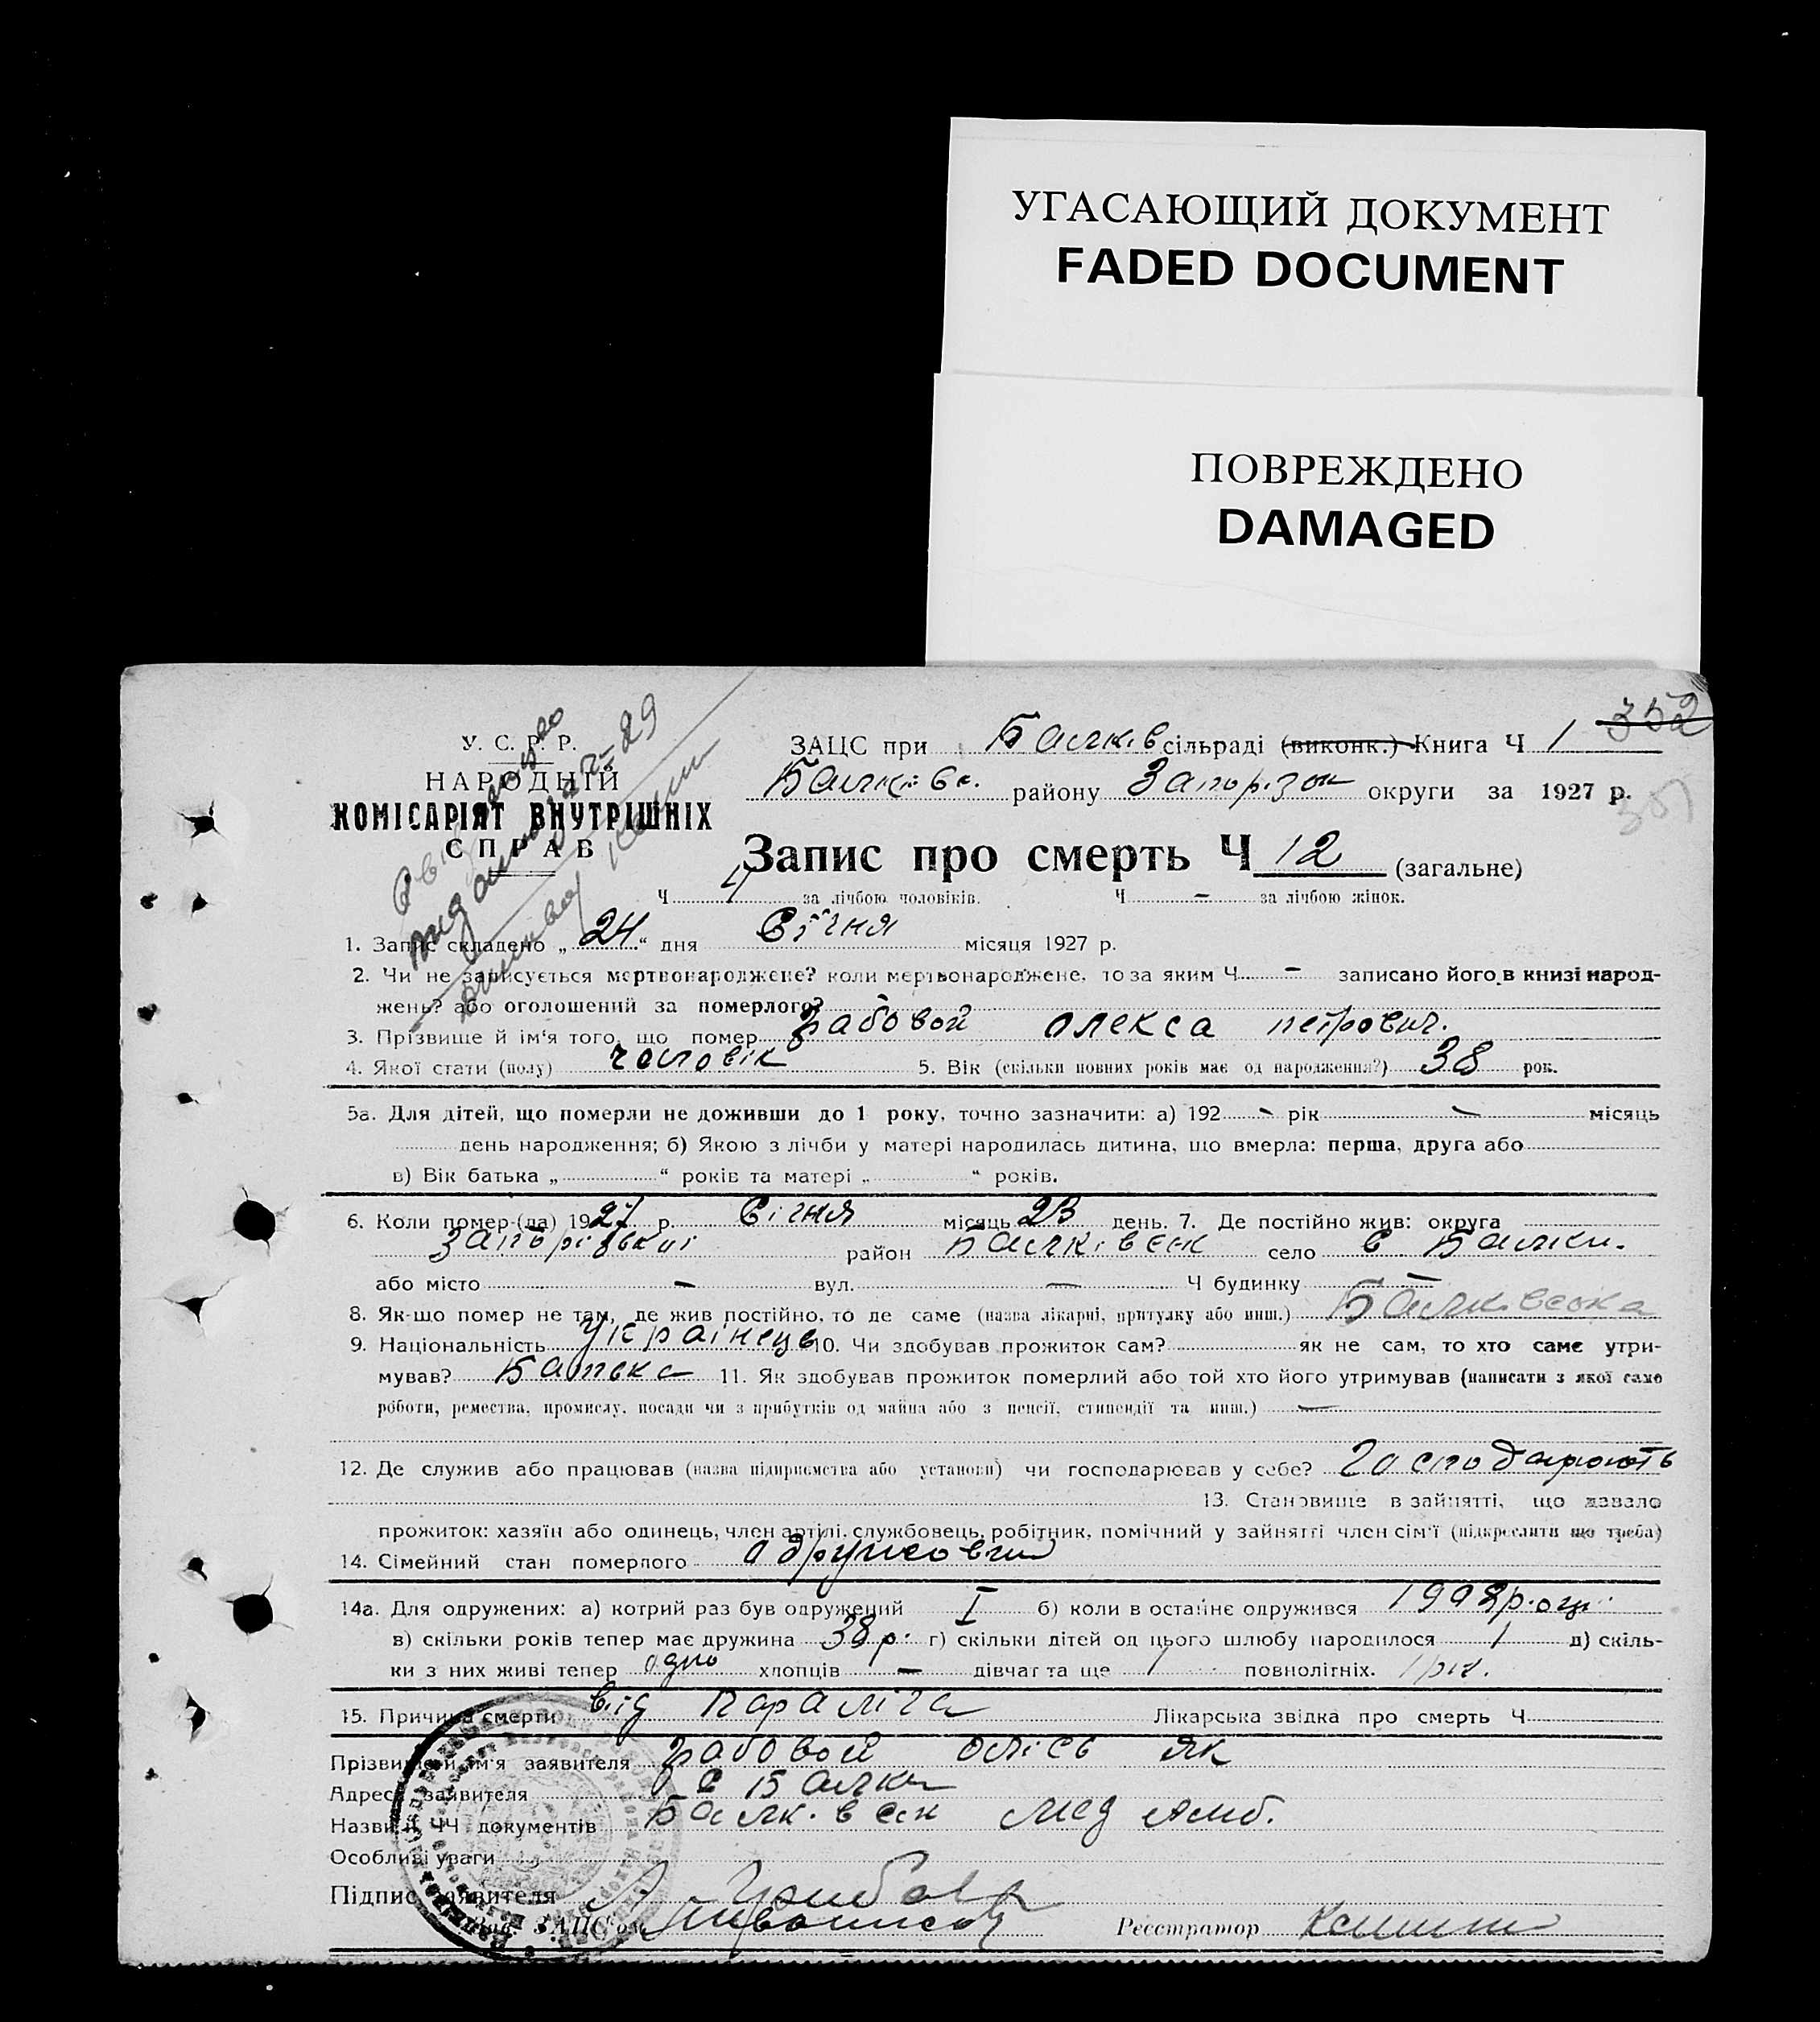 УГАСАЮЩИЙ ДОКУМЕНТ
FADED DOCUMENT
ПОВРЕЖДЕНО
DAMAGED
352
У. С. Р. Р.
НАРОДНІЙ
КОМІСАРІЯТ ВНУТРІШНІХ
СПРАВ
ЗАЦС при Балків сільраді (виконк.) Книга Ч 1
Балків. району Запоріз округи за 1927 р.
Запис про смерть Ч 12 (загальне)
Ч за лічбою чоловіків. Ч – за лічбою жінок.
1. Запис складено „24“ дня Січня місяця 1927 р.
2. Чи не записується мертвонароджене? коли мертвонароджене, то за яким Ч – записано його в книзі народ-
жень? або оголошений за померлого? –
3. Прізвище й ім'я того, що помер Грабовой Олекса петрович.
4. Якої стати (полу) чоловік 5. Вік (скільки повних років має од народження?) 38 рок.
5а. Для дітей, що померли не доживши до 1 року, точно зазначити: а) 192 – рік – місяць
день народження; б) Якою з лічби у матері народилась дитина, що вмерла: перша, друга або
в) Вік батька „ “ років та матері „ “ років.
6. Коли помер (ла) 1927 р. Січня місяць 23 день. 7. Де постійно жив: округа
Запорізької район Балківськ село с Балки.
або місто – вул. – Ч будинку –
8. Як-що помер не там, де жив постійно, то де саме (назва лікарні, притулку або инш.) Балківська
9. Національність Українець 10. Чи здобував прожиток сам? як не сам, то хто саме утри-
мував? Батька 11. Як здобував прожиток померлий або той хто його утримував (написати з якої саме
роботи, ремества, промислу, посади чи з прибутків од майна або з пенсії, стипендії та инш.) –
12. Де служив або працював (назва підприємства або установи) чи господарював у себе? Господарюють
13. Становище в зайнятті, що давало
прожиток: хазяїн або одинець, член артілі, службовець, робітник, помічний у зайнятті член сім'ї (підкреслити що треба)
14. Сімейний стан померлого одружений
14а. Для одружених: а) котрий раз був одружений I б) коли в останнє одружився 1908р.
в) скільки років тепер має дружина 38 р. г) скільки дітей од цього шлюбу народилося 1 д) скіль-
ки з них живі тепер одно хлопців – дівчат та ще 1 повнолітніх.
15. Причина смерти від параліча Лікарська звідка про смерть Ч
Прізвище й ім'я заявителя Грабовой
Адреса заявителя с Балки
Назви й ЧЧ документів Балківськ мед Амб.
Особливі уваги
Підпис заявителя
Зав. ЗАЦС'ом Реєстратор